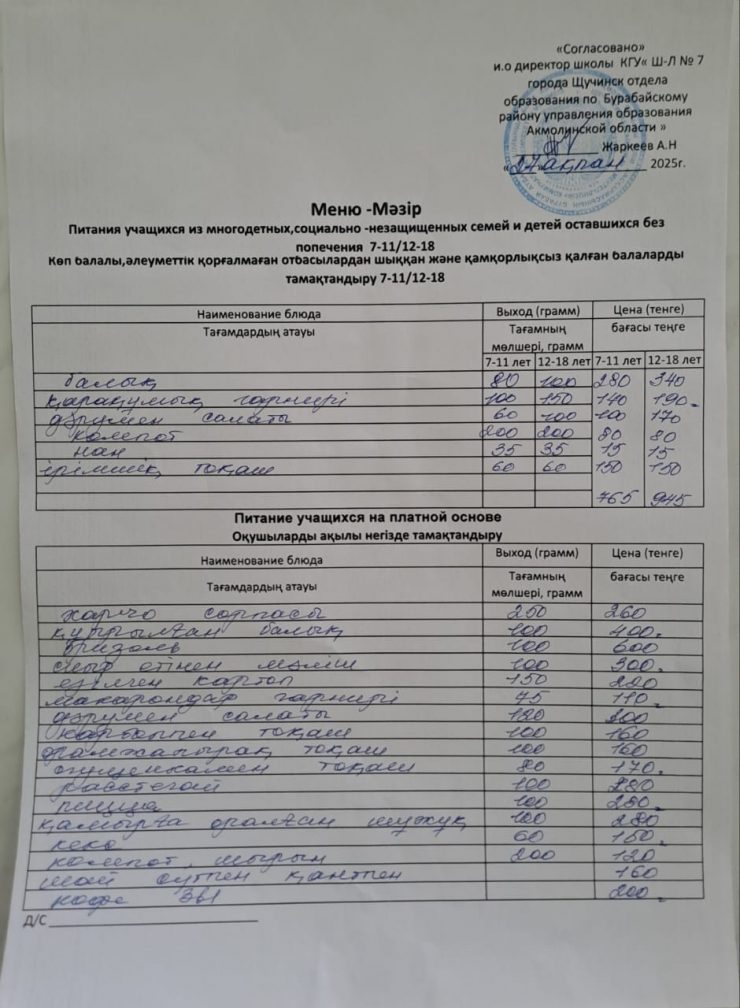 «Согласовано»
и.о директор школы КГУ« Ш-Л № 7
города Щучинск отдела
образования по Бурабайскому
району управления образования
Акмолинской области »
Жаркеев А.Н
«27» ақпан 2025г.
Меню -Мәзір
Питания учащихся из многодетных,социально -незащищенных семей и детей оставшихся без
попечения 7-11/12-18
Көп балалы,әлеуметтік қорғалмаған отбасылардан шыққан және қамқорлықсыз қалған балаларды
тамақтандыру 7-11/12-18
Наименование блюда Выход (грамм) Цена (тенге)
Тағамдардың атауы Тағамның мөлшері, грамм бағасы теңге
7-11 лет 12-18 лет 7-11 лет 12-18 лет
балық 80 100 280 340
қарақұмық гарнирі 100 150 140 190
дәрумен салаты 60 100 100 170
компот 200 200 80 80
нан 35 35 15 15
ірімшік тоқаш 60 60 150 150
765 945
Питание учащихся на платной основе
Оқушыларды ақылы негізде тамақтандыру
Наименование блюда Выход (грамм) Цена (тенге)
Тағамдардың атауы Тағамның мөлшері, грамм бағасы теңге
харчо сорпасы 250 260
қуырылған балық 100 400
бризоль 100 600
сиыр етінен 100 300
езілген картоп 150 220
макарондар гарнирі 75 110
дәрумен салаты 120 200
тоқаш 100 160
тоқаш 100 160
сгущенкамен тоқаш 80 170
расстегай 100 280
пицца 100 280
қамырға оралған шұжық 100 280
кекс 60 150
компот, шырын 200 120
шай сүтпен қантпен 160
кофе 3в1 200
Д/С